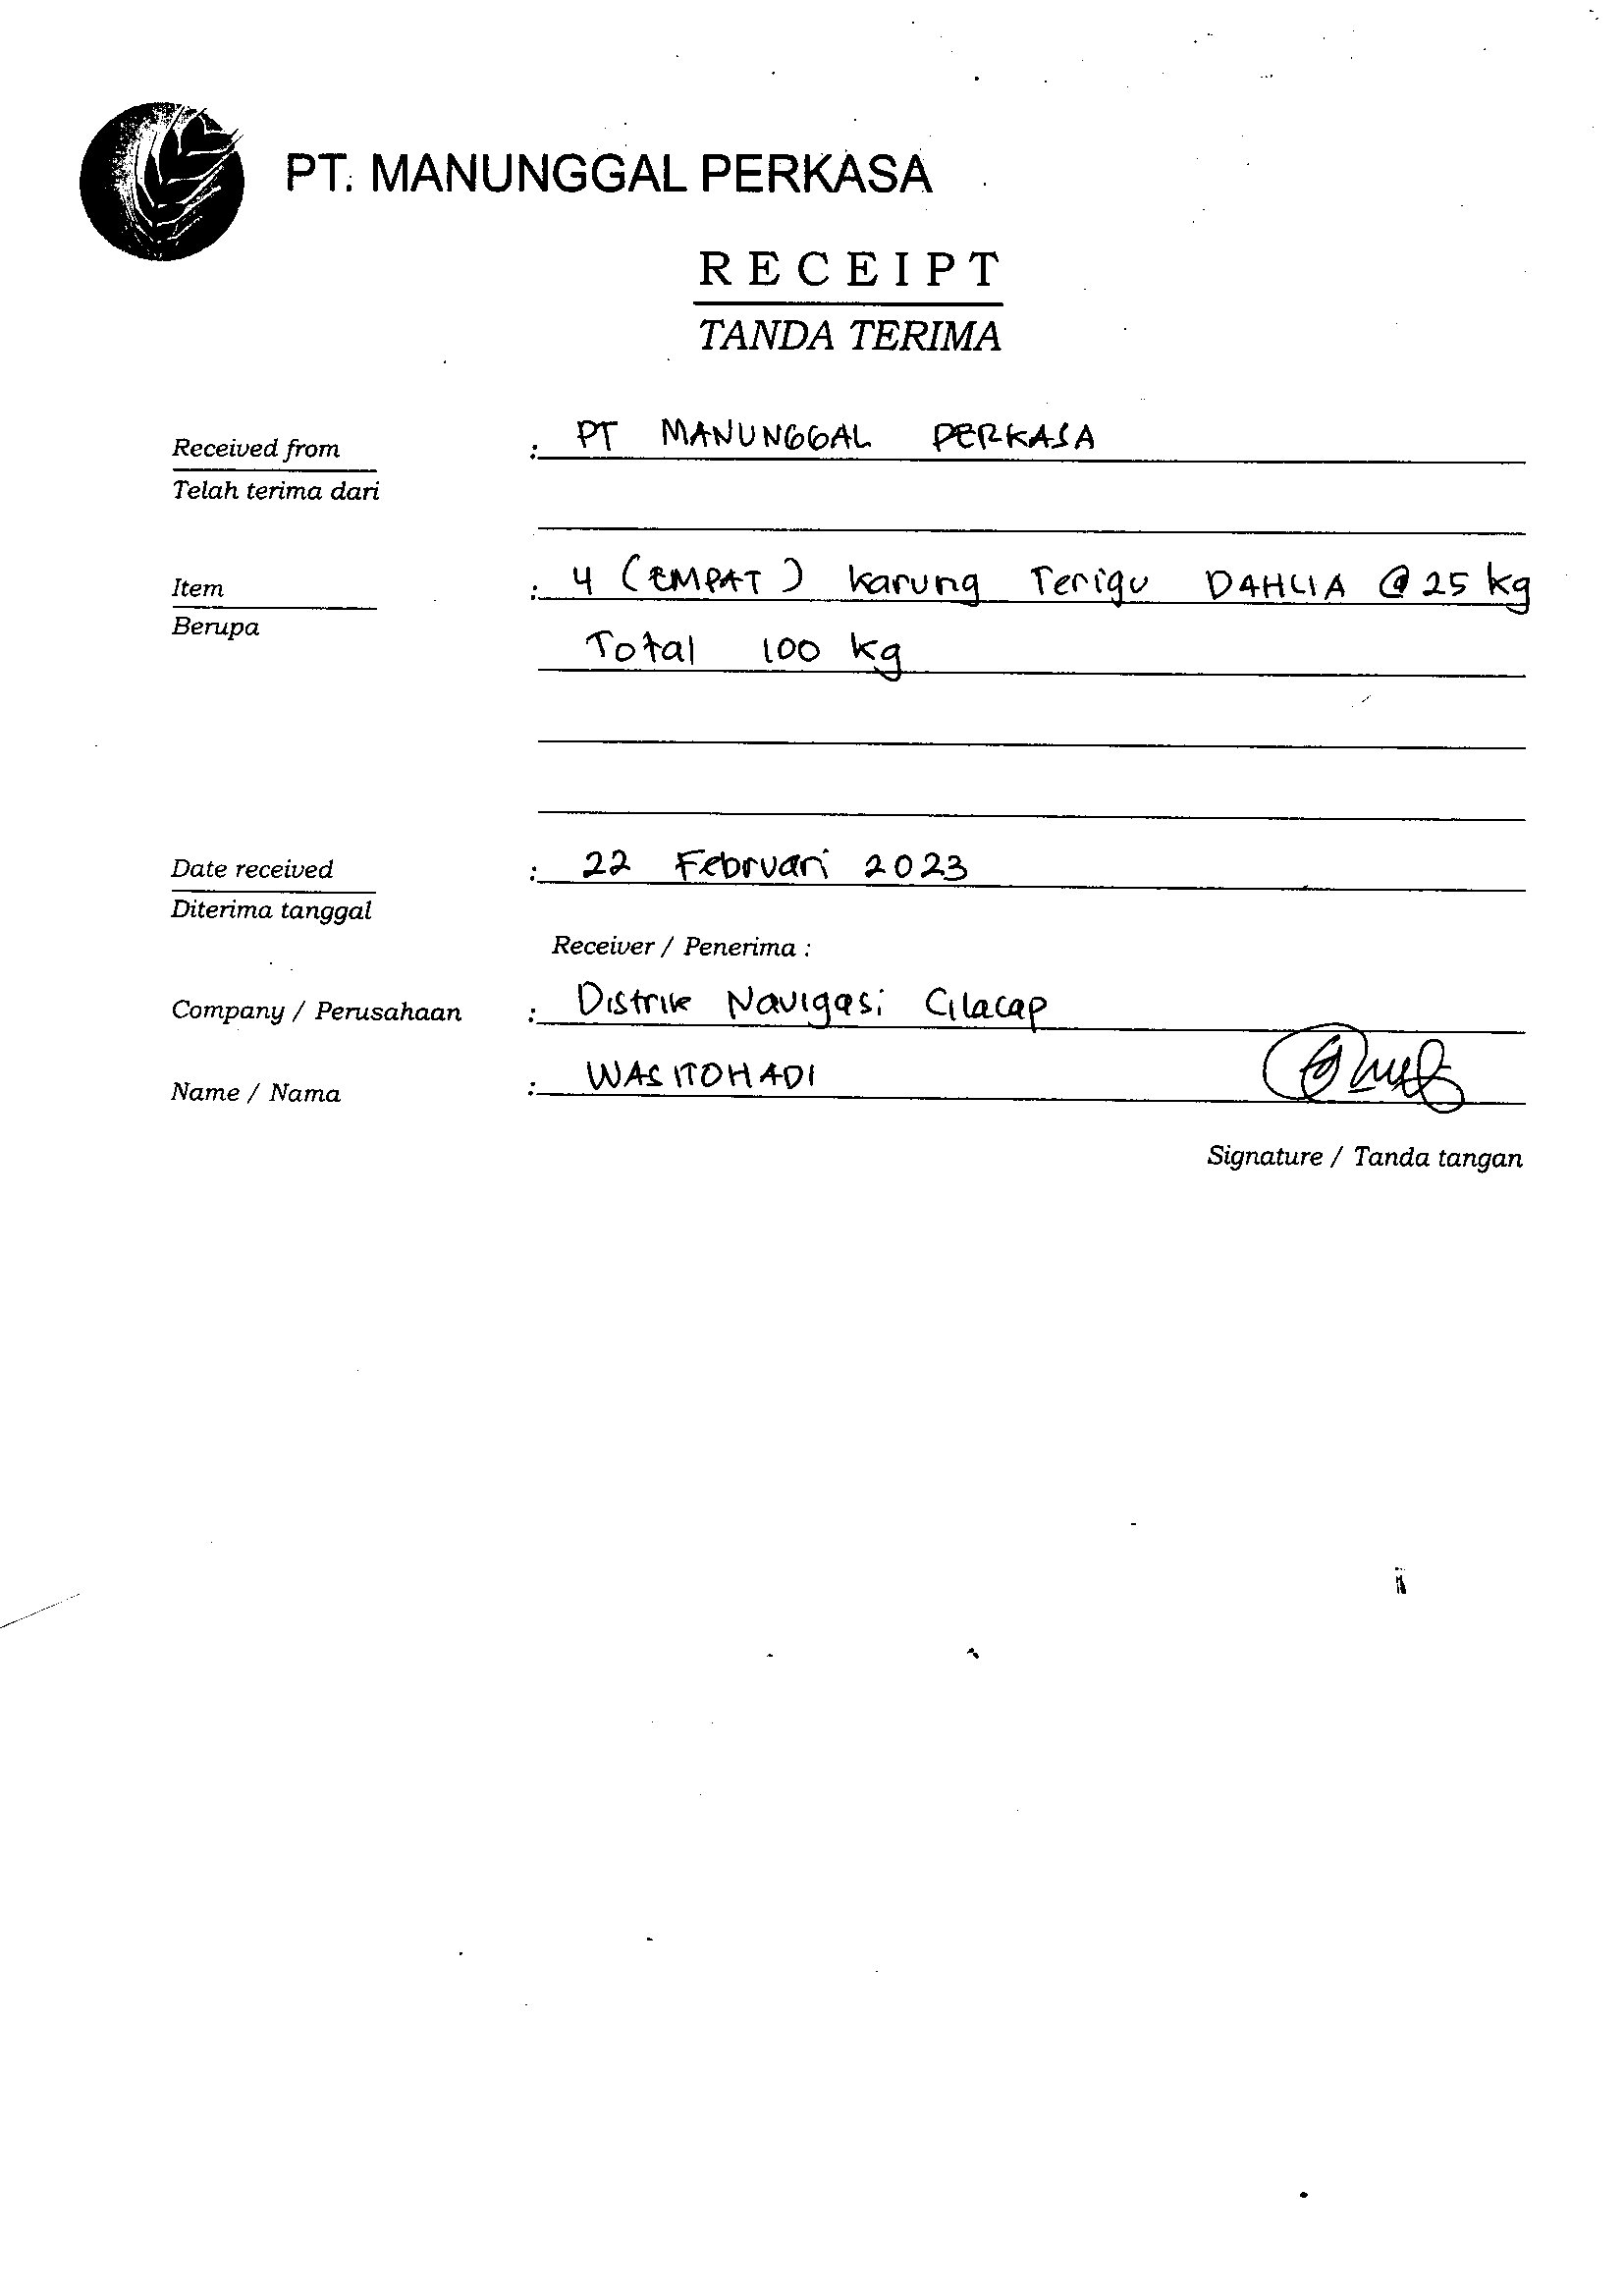 PT. MANUNGGAL PERKASA
RECEIPT
TANDA TERIMA
Received from : PT MANUNGGAL PERKASA
Telah terima dari
Item : 4 (EMPAT) karung Terigu DAHLIA @ 25 kg
Berupa
Total 100 kg
Date received : 22 Februari 2023
Diterima tanggal
Receiver / Penerima :
Company / Perusahaan : Distrik Navigasi Cilacap
Name / Nama : WASITOHADI
Signature / Tanda tangan